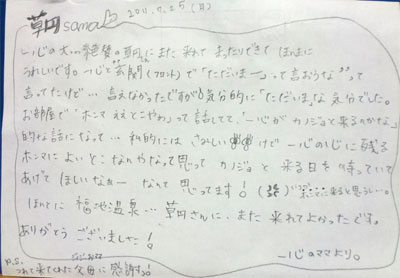 草円sama 2011.9.25(日)
一心の大絶賛の草円にまた来れて まったりできて ほんまに
うれしいです。一心と"玄関(フロント)で「ただいまー」って言おうな"って
言ってたけど… 言えなかったですが気分的に「ただいま」な気分でした。
お部屋で「ホンマ ええとこやわ」って話してて、「一心がカノジョと来るのかな」
的な話になって… 私的には さみしい けど 一心の心に残る
ホンマに よいところなんやなって思って カノジョ と 来る日を待っていて
あげて ほしいなぁー なんて 思ってます!
ほんとに 福地温泉… 草円さんに、また 来れてよかったです。
ありがとう ございました!
一心のママより。
P.S. つれて来てくれた 父母に 感謝っ!